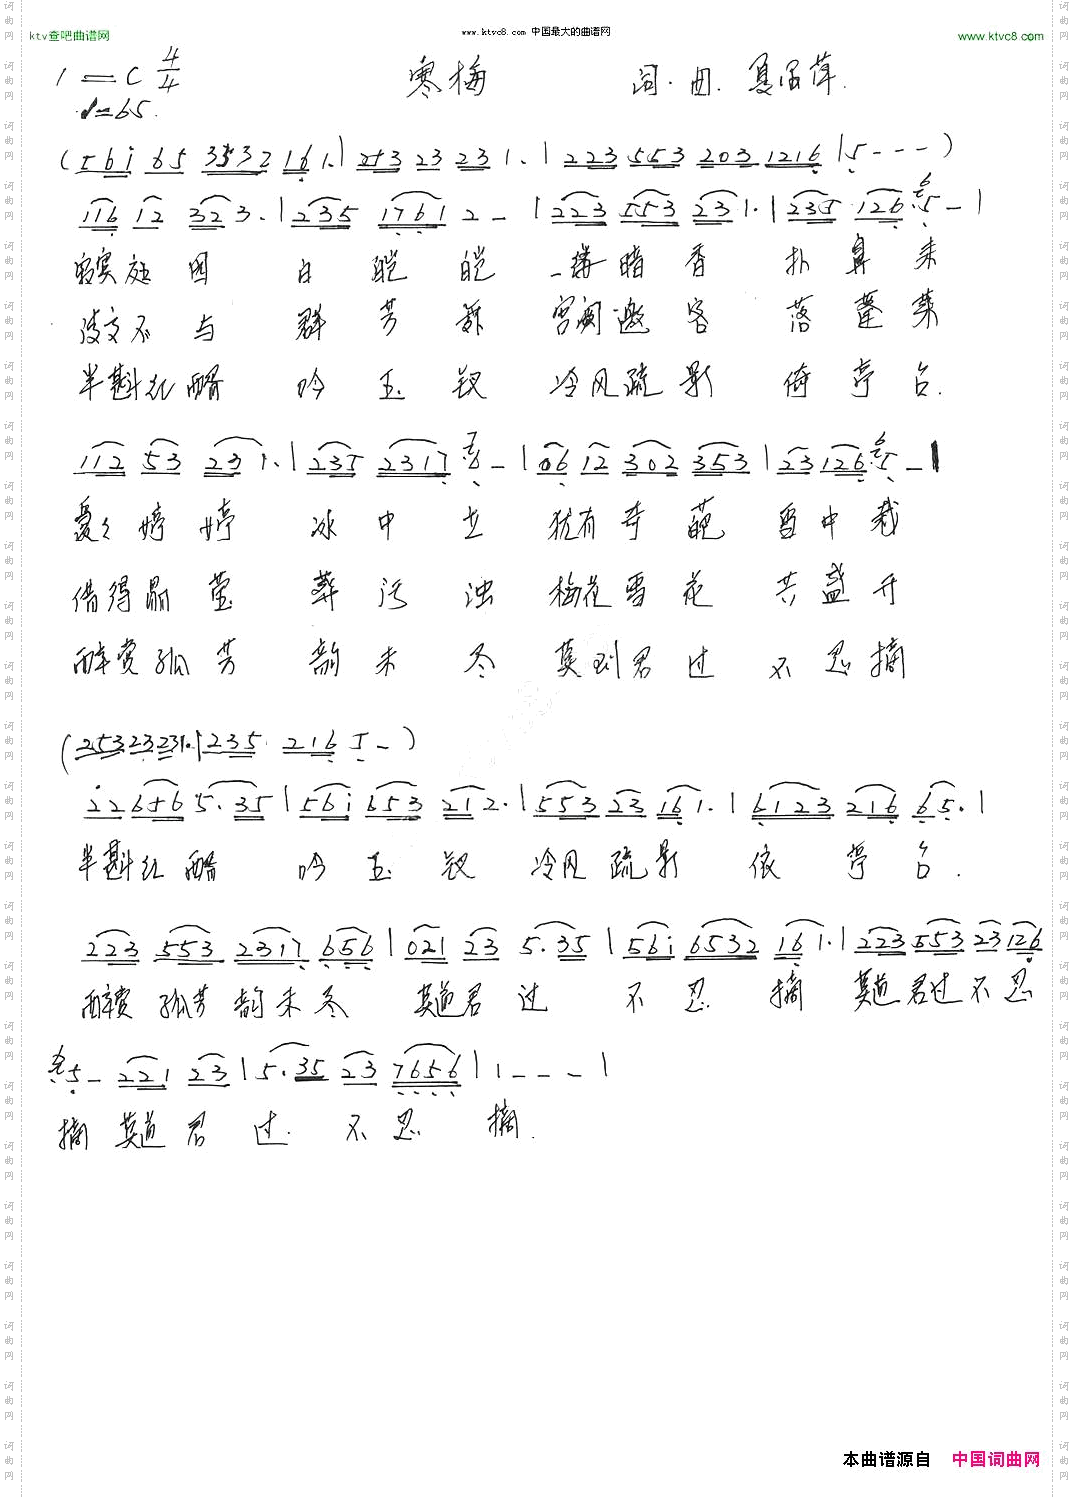 ktv查吧曲谱网
www.ktvc8.com 中国最大的曲谱网
www.ktvc8.com
1=C 4/4
寒梅
词·曲.
♩=65.
(561̇ 65 3532 161.|253 23 231.|223 553 203 1216|5---)
116 12 323.|235 1761 2-|223 553 231.|235 126 5-|
寂寞庭园 白皑皑 一缕暗香 扑鼻来
不与 群芳 宫阙邀客 落蓬莱
半斟红醑 吟玉钗 冷风疏影 倚亭台.
112 53 231.|235 2317 6-|06 12 302 353|23 126 5-|
婷婷 冰中立 犹有奇葩 雪中栽
借得晶莹 葬污浊 梅花雪花 共盛开
醉赏孤芳 韵未尽 莫到君过 不忍摘
(253 23 231.|235 216 5-)
226 56 5.35|561̇ 653 212.|553 23 161.|6123 216 65.|
半斟红醑 吟玉钗 冷风疏影 依亭台.
223 553 2317 656|021 23 5.35|561̇ 6532 161.|223 553 23 126
醉赏孤芳韵未尽 莫道君过 不忍 摘 莫道君过不忍
5- 221 23|5.35 23 7656|1---|
摘 莫道君过. 不忍 摘.
本曲谱源自 中国词曲网